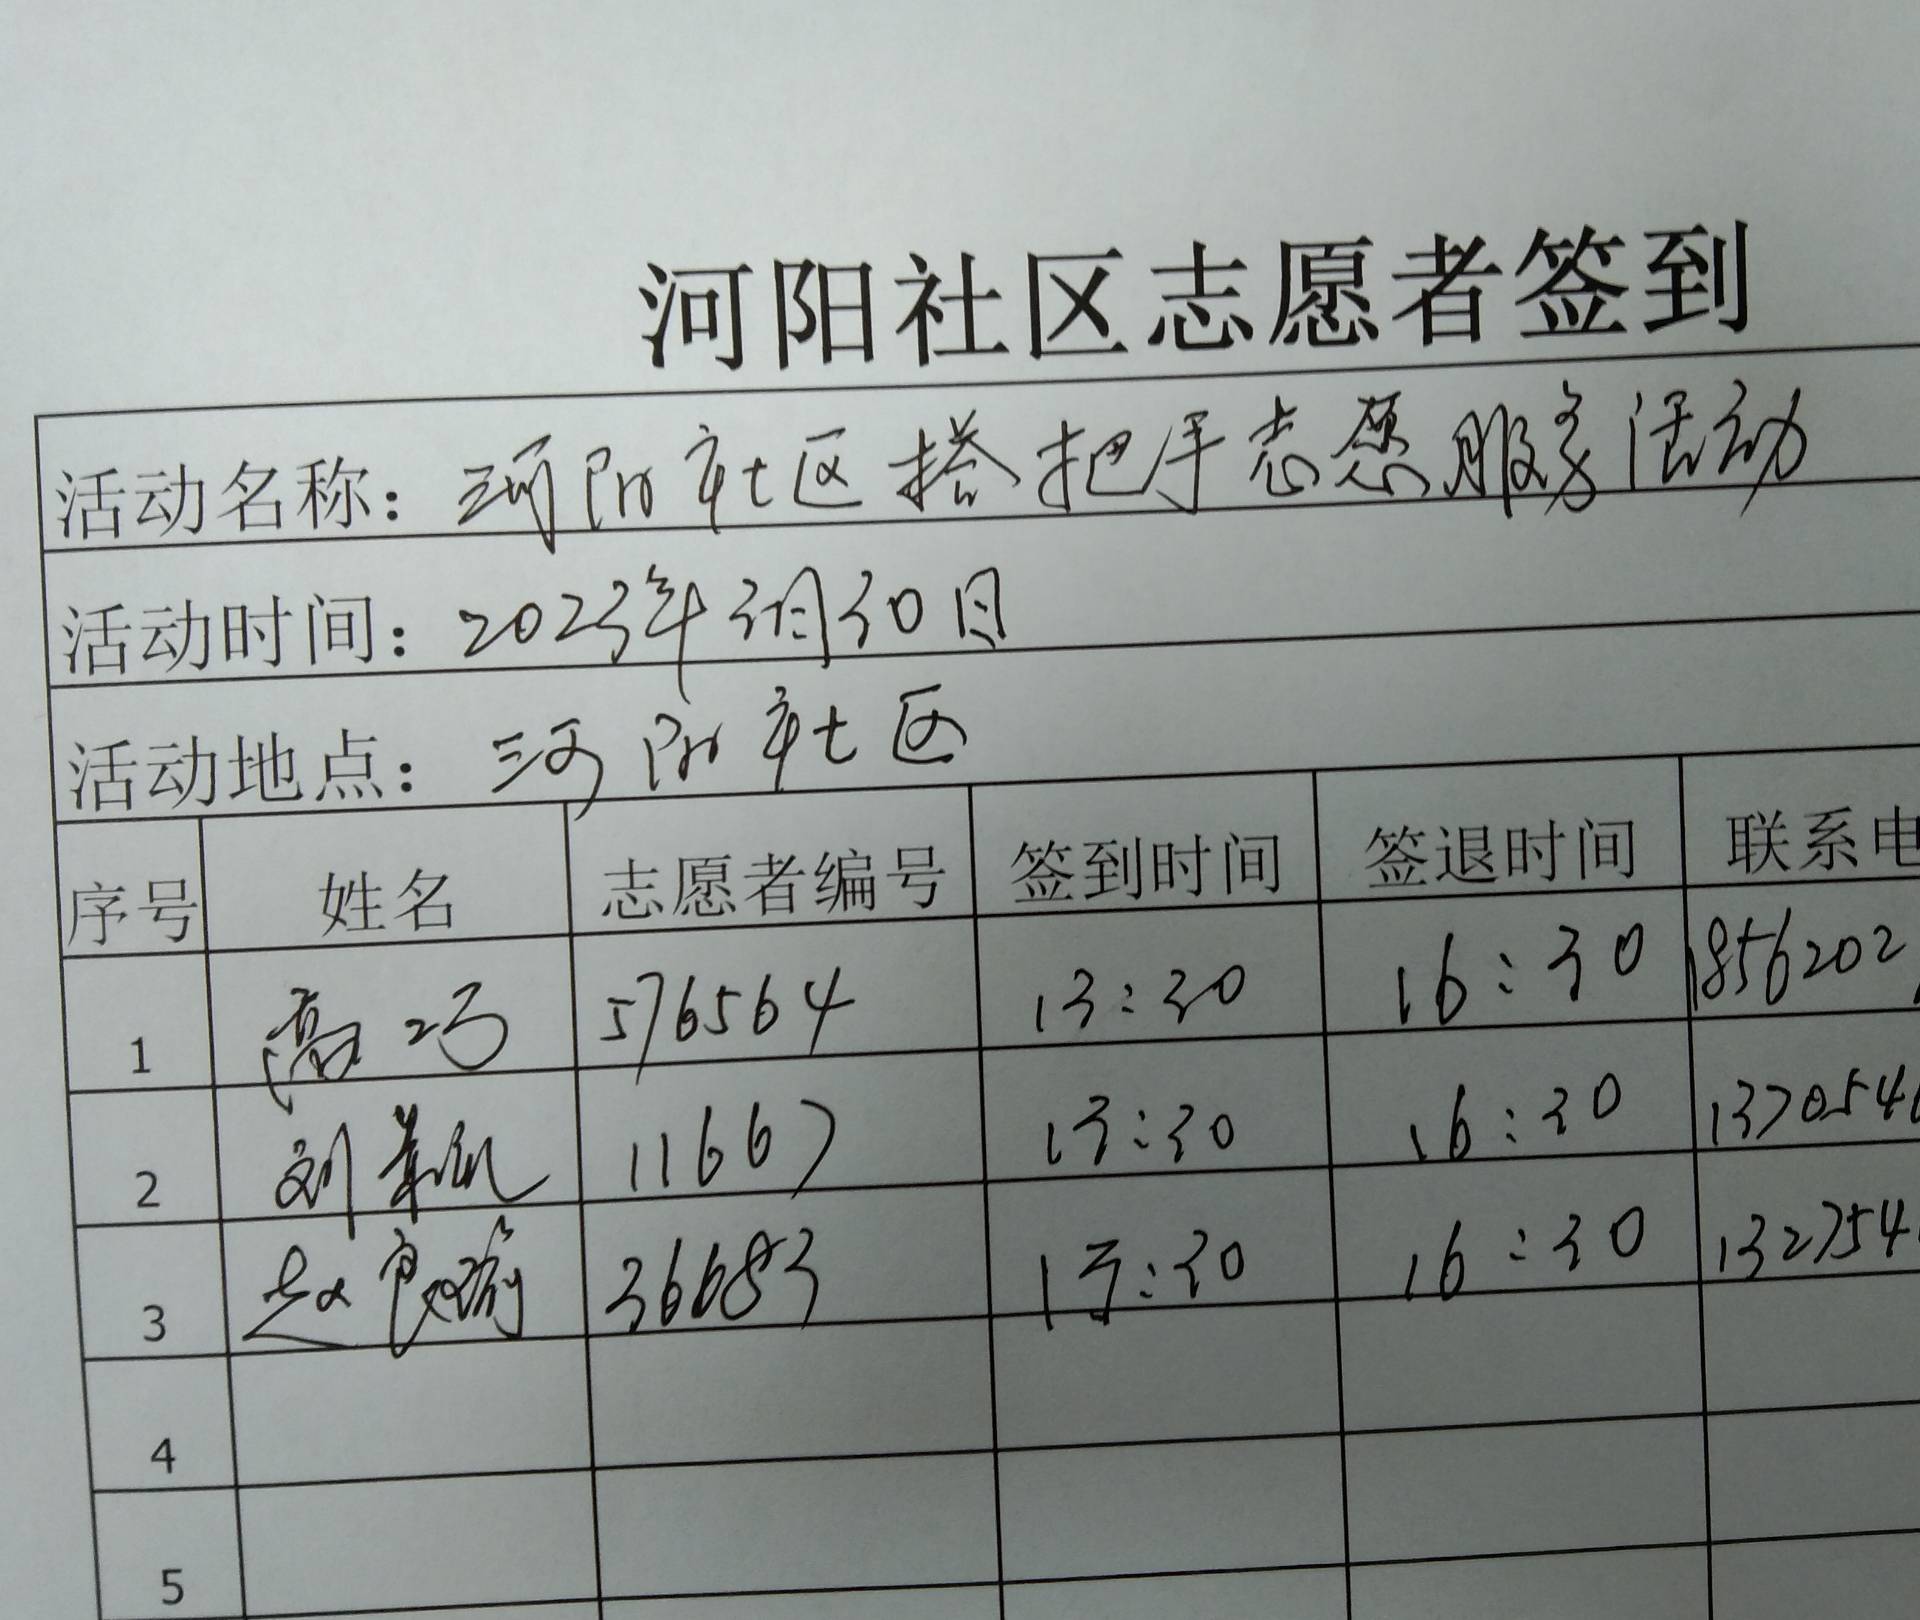 河阳社区志愿者签到
活动名称：河阳社区搭把手志愿服务活动
活动时间：2023年3月30日
活动地点：河阳社区
序号 姓名 志愿者编号 签到时间 签退时间 联系电
1 高巧 576564 13:30 16:30 1856202
2 刘 11667 13:30 16:30 1370546
3 赵良瑜 36683 13:30 16:30 1327541
4
5